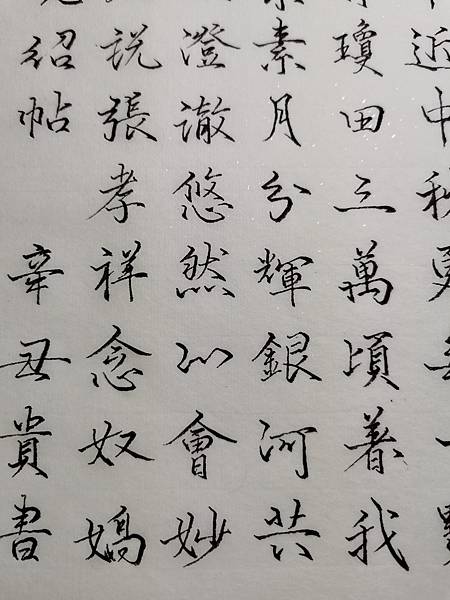 近中秋更無一點
瓊田三萬頃着我
素月分輝銀河共
澄澈悠然心會妙
説張孝祥念奴嬌
紹帖 辛丑貴書